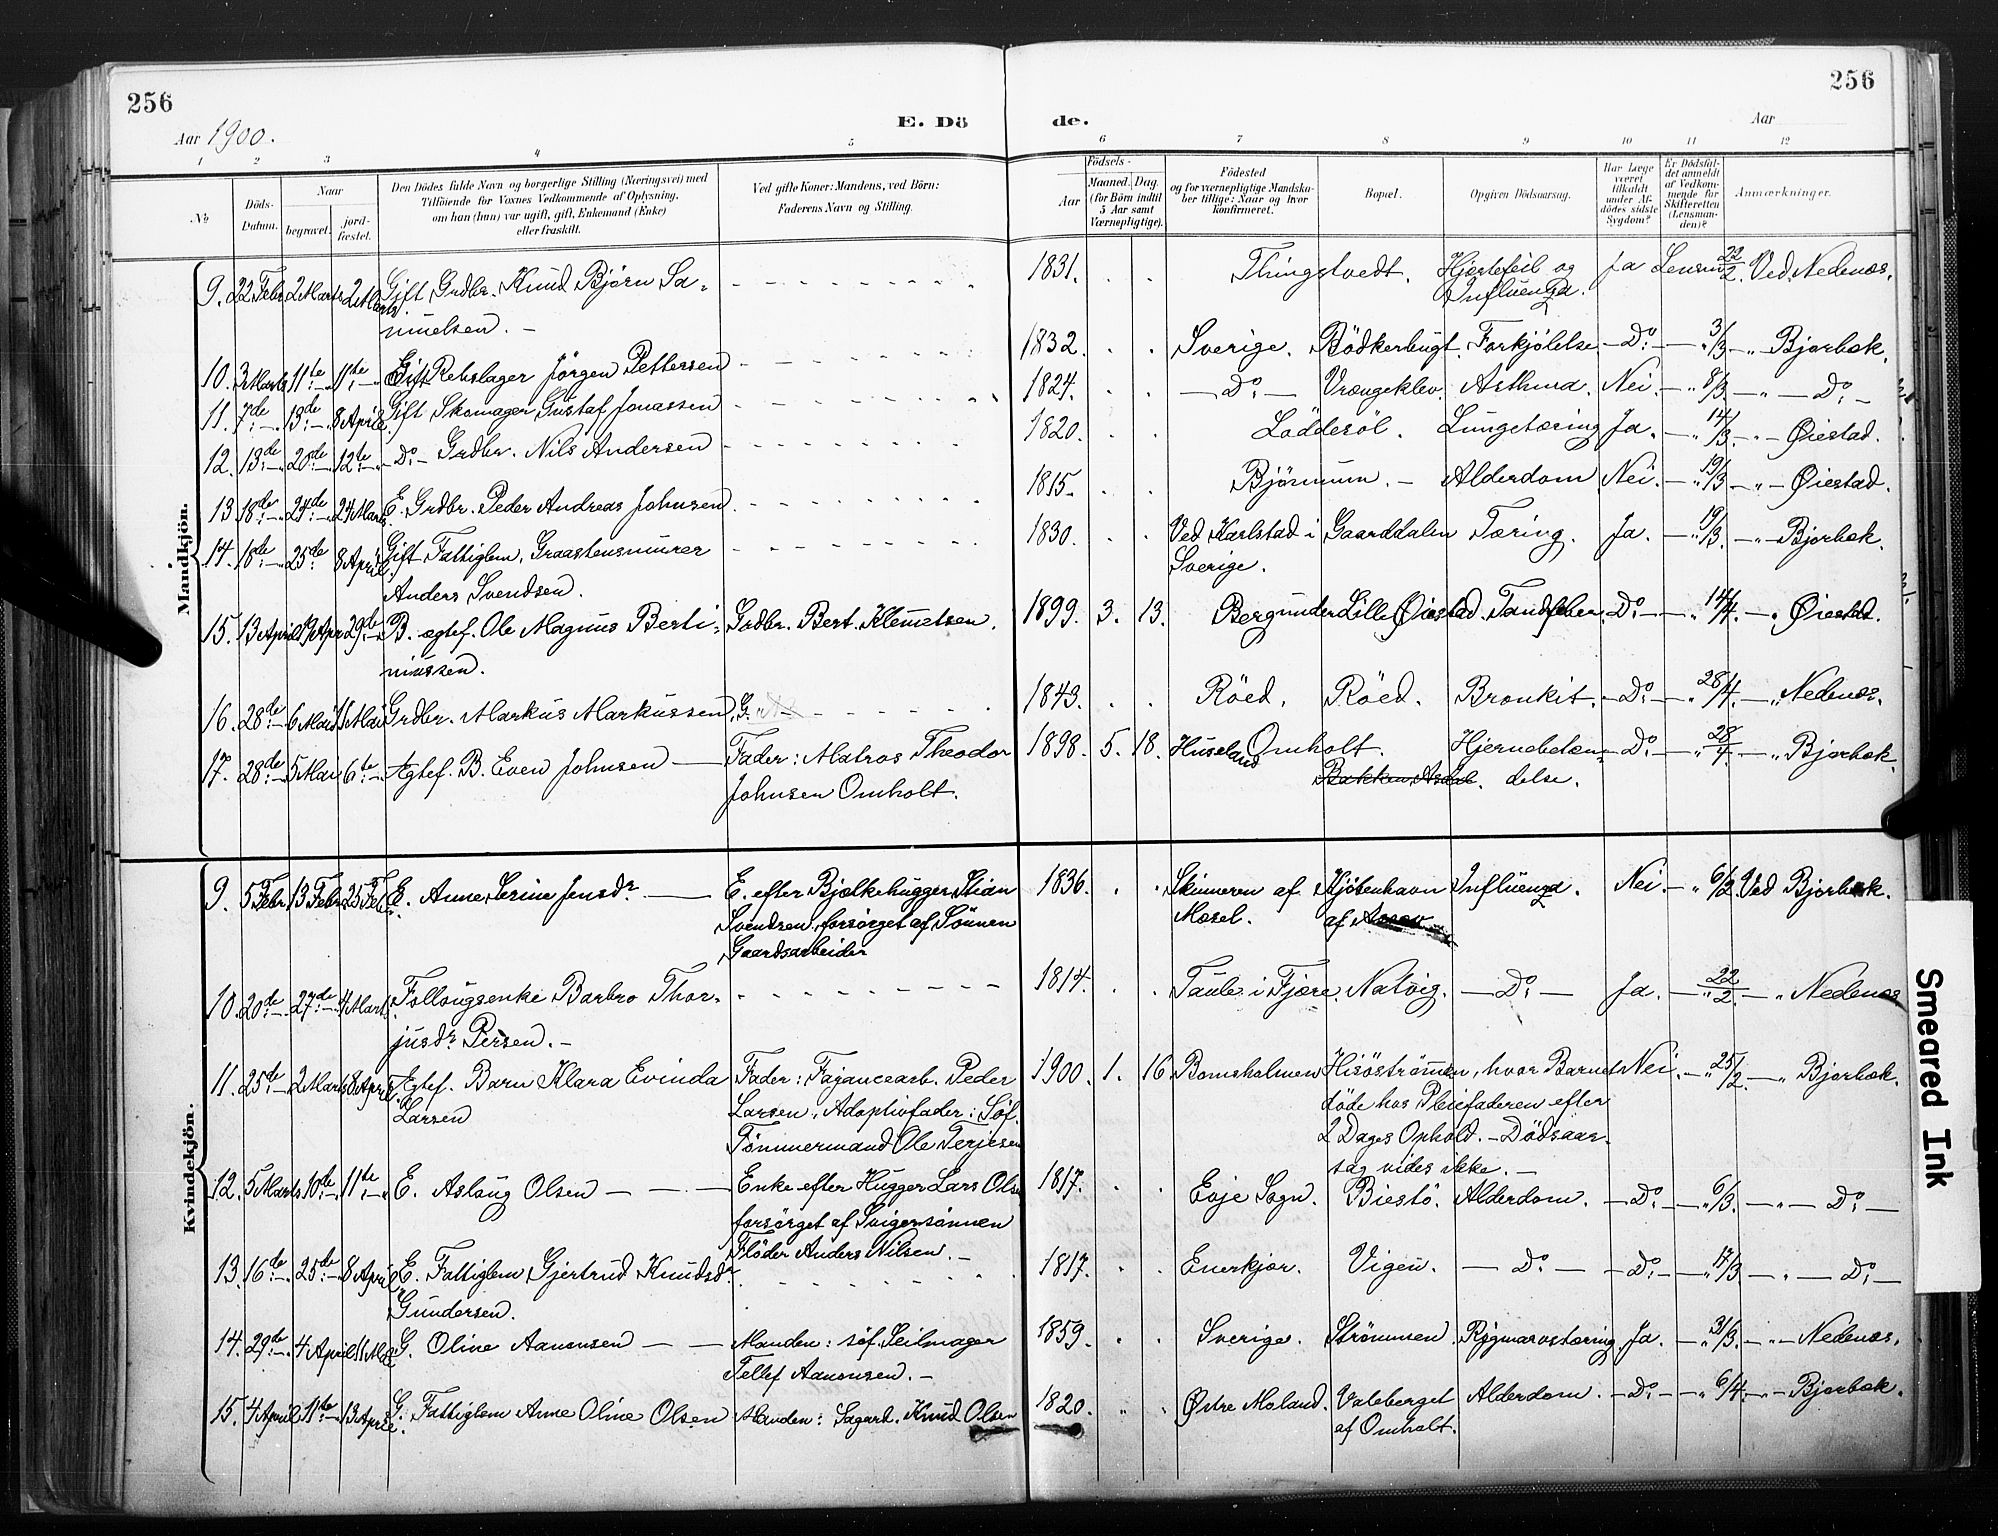 256
256
Aar 1900.
E. Dö
de.
Aar
1 2 3 4 5 6 7 8 9 10 11 12
No
Döds-Datum.
Naar
begravet.
jordfæstet.
Den Dödes fulde Navn og borgerlige Stilling (Næringsvei) med
Tilföiende for Voxnes Vedkommende af Oplysning,
om han (hun) var ugift, gift, Enkemand (Enke)
eller fraskilt.
Ved gifte Koner: Mandens, ved Börn:
Faderens Navn og Stilling.
Födsels-
Aar
Maaned. Dag.
(for Börn indtil
5 Aar samt
Værnepligtige).
Födested
og for værnepligtige Mandskaber
tillige: Naar og hvor
Konfirmeret.
Bopæl.
Opgiven Dödsaarsag.
Har Læge
været
tilkaldt
under Afdödes
sidste
Sygdom?
Er Dödsfaldet
anmeldt
af Vedkommende
for
Skifteretten
(Lensmanden)?
Anmærkninger.
Mandkjön.
9. 22 Febr. 2 Marts 2 Marts Gift Grdbr. Knud Björn Sa- 1831. Thingstvedt. Hjertefeil og Ja Lensm 22/2. Ved. Nedenæs.
muelsen. Influenza.
10. 3 Marts 11te 11te Gift Rebslager Jörgen Pettersen 1832. Sverige. Bödkerbugt. Forkjölelse Do 3/3 Bjorbæk.
11. 7de 13de 8 April Gift Skomager Gustaf Jonassen 1824. Do Vrængeklev. Asthma. Nei. 8/3 Do
12. 13de 20de 12te Do Grdbr. Nils Andersen 1820. Löddesöl. Lungetæring Ja. 14/3 Øiestad.
13 18de 24de 24 Marts E. Grdbr. Peder Andreas Johnsen 1815. Björnmum. Alderdom. Nei. 19/3 Øiestad.
14. 18de 25de 8 April Gift Fattiglem, Graastensmurer 1830. Ved Karlstad i Gaarddalen Tæring. Ja. 19/3. Bjorbæk.
Anders Svendsen. Sverige.
15. 13 April 19 Apr 29de B. ægtef. Ole Magnus Berti- Grdbr. Bert. Klemetsen. 1899. 3. 13. Berg under Lille Øiestad. Tandfeber. Do 14/4. Øiestad.
niussen.
16. 28de 6 Mai Mai Grdbr. Markus Markussen, G. 1843. Röed. Röed. Bronkit. Do 28/4. Nedenæs.
17. 28de 5 Mai 6te Ægtef. B. Even Johnsen Fader: Matros Theodor 1898. 5. 18. Huseland Omholt. Hjernebetæn- Do 28/4 Bjorbæk.
Johnsen Omholt. delse.
Kvindekjön.
9. 5 Febr. 13 Febr. 25 Feb. E. Anne Serine Jensdr E. efter Bjelkehugger Stian 1836. Skinneren af Kjöbenhavn Influenza. Nei. 6/2 Ved Bjorbæk.
Svendsen, forsörget af Sönnen Mosel. af
Gaardsarbeider
10. 20de 27de 4 Marts Follougsenke Barbro Thor- 1814. Taule i Fjære. Natvig. Do Ja. 22/2. Nedenæs
jusdr Persen.
11. 25de 2 Marts 8 April Ægtef. Barn Klara Evinda Fader: Fajancearb. Peder 1900. 1. 16. Bomsholmen Hisöströmmen, hvor Barnet Nei. 25/2. Bjorbæk.
Larsen Larsen, Adoptivfader: Söf. döde hos Pleiefaderen efter
Tömmermand Ole Terjesen 2 Dages Ophold. Dödsaar-
sag vides ikke.
12. 5 Marts 10de 11te E. Aslaug Olsen Enke efter Hugger Lars Olsen 1817. Evje Sogn. Biestö. Alderdom. Do 6/3. Do
forsörget af Svigersönnen
Flöder Anders Nilsen.
13. 16de 25de 8 April E. Fattiglem Gjertrud Knudsdr 1817. Enerkjær. Vigen. Do Do 17/3. Do
Gundersen.
14. 29de 4 April Mai G. Oline Aanonsen Manden: söf. Seilmager 1859. Sverige. Strömmen. Rygmarvstæring. Ja. 31/3. Nedenæs.
Tellef Aanonsen.
15. 4 April 11te 13 April G. Fattiglem Anne Oline Olsen Manden: Sagarb. Knud Olsen 1820. Østre Moland. Valeberget Alderdom. Do 6/4. Bjorbæk.
af Omholt.
Smeared Ink